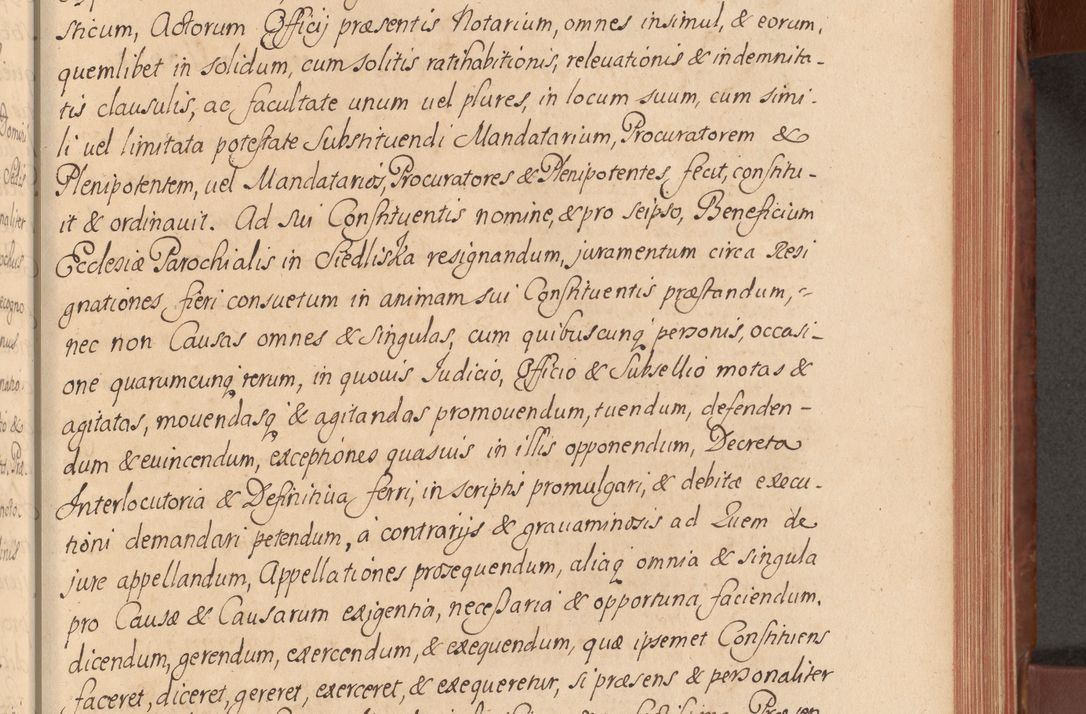 sticum, Actorum Officij præsentis Notarium, omnes insimul, & eorum,
quemlibet in solidum, cum solitis ratihabitionis, releuationis & indemnita-
tis clausulis, ac facultate unum uel plures, in locum suum, cum simi-
li uel limitata potestate Substituendi Mandatarium, Procuratorem &
Plenipotentem, uel Mandatarios, Procuratores & Plenipotentes, fecit, constitu-
it & ordinauit. Ad sui Constituentis nomine, & pro seipso, Beneficium
Ecclesiæ Parochialis in Siedliska resignandum, juramentum circa Resi
gnationes fieri consuetum in animam sui Constituentis præstandum,
nec non Causas omnes & singulas, cum quibuscunq personis, occasi-
one quarumcunq rerum, in quouis Judicio, Officio & Subsellio motas &
agitatas, mouendasq & agitandas promouendum, tuendum, defenden-
dum & euincendum, exceptiones quasuis in illis opponendum, Decreta
Interlocutoria & Definitiua ferri, in scriptis promulgari, & debitæ execu-
tioni demandari petendum, à contrarijs & grauaminosis ad Quem de
jure appellandum, Appellationes prosequendum, aliaq omnia & singula
pro Causæ & Causarum exigentia, necessaria & opportuna faciendum,
dicendum, gerendum, exercendum, & exequendum, quæ ipsemet Constituens
faceret, diceret, gereret, exerceret, & exequeretur, si præsens & personaliter